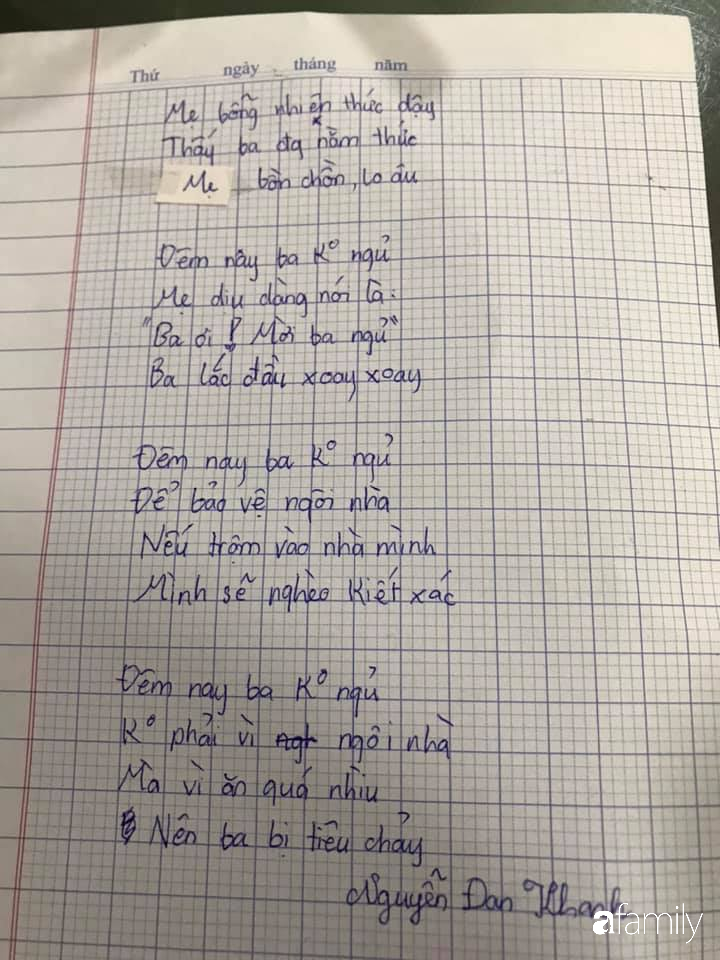 Thứ ngày tháng năm
Mẹ bỗng nhiên thức dậy
Thấy ba đq nằm thức
Mẹ bồn chồn, lo âu
Đêm nay ba K° ngủ
Mẹ dịu dàng nói là:
"Ba ơi! Mời ba ngủ"
Ba lắc đầu xoay xoay
Đêm nay ba K° ngủ
Để bảo vệ ngôi nhà
Nếu trộm vào nhà mình
Mình sẽ nghèo kiết xác
Đêm nay ba K° ngủ
K° phải vì ngôi nhà
Mà vì ăn quá nhìu
Nên ba bị tiêu chảy
Nguyễn Đan Khanh
afamily